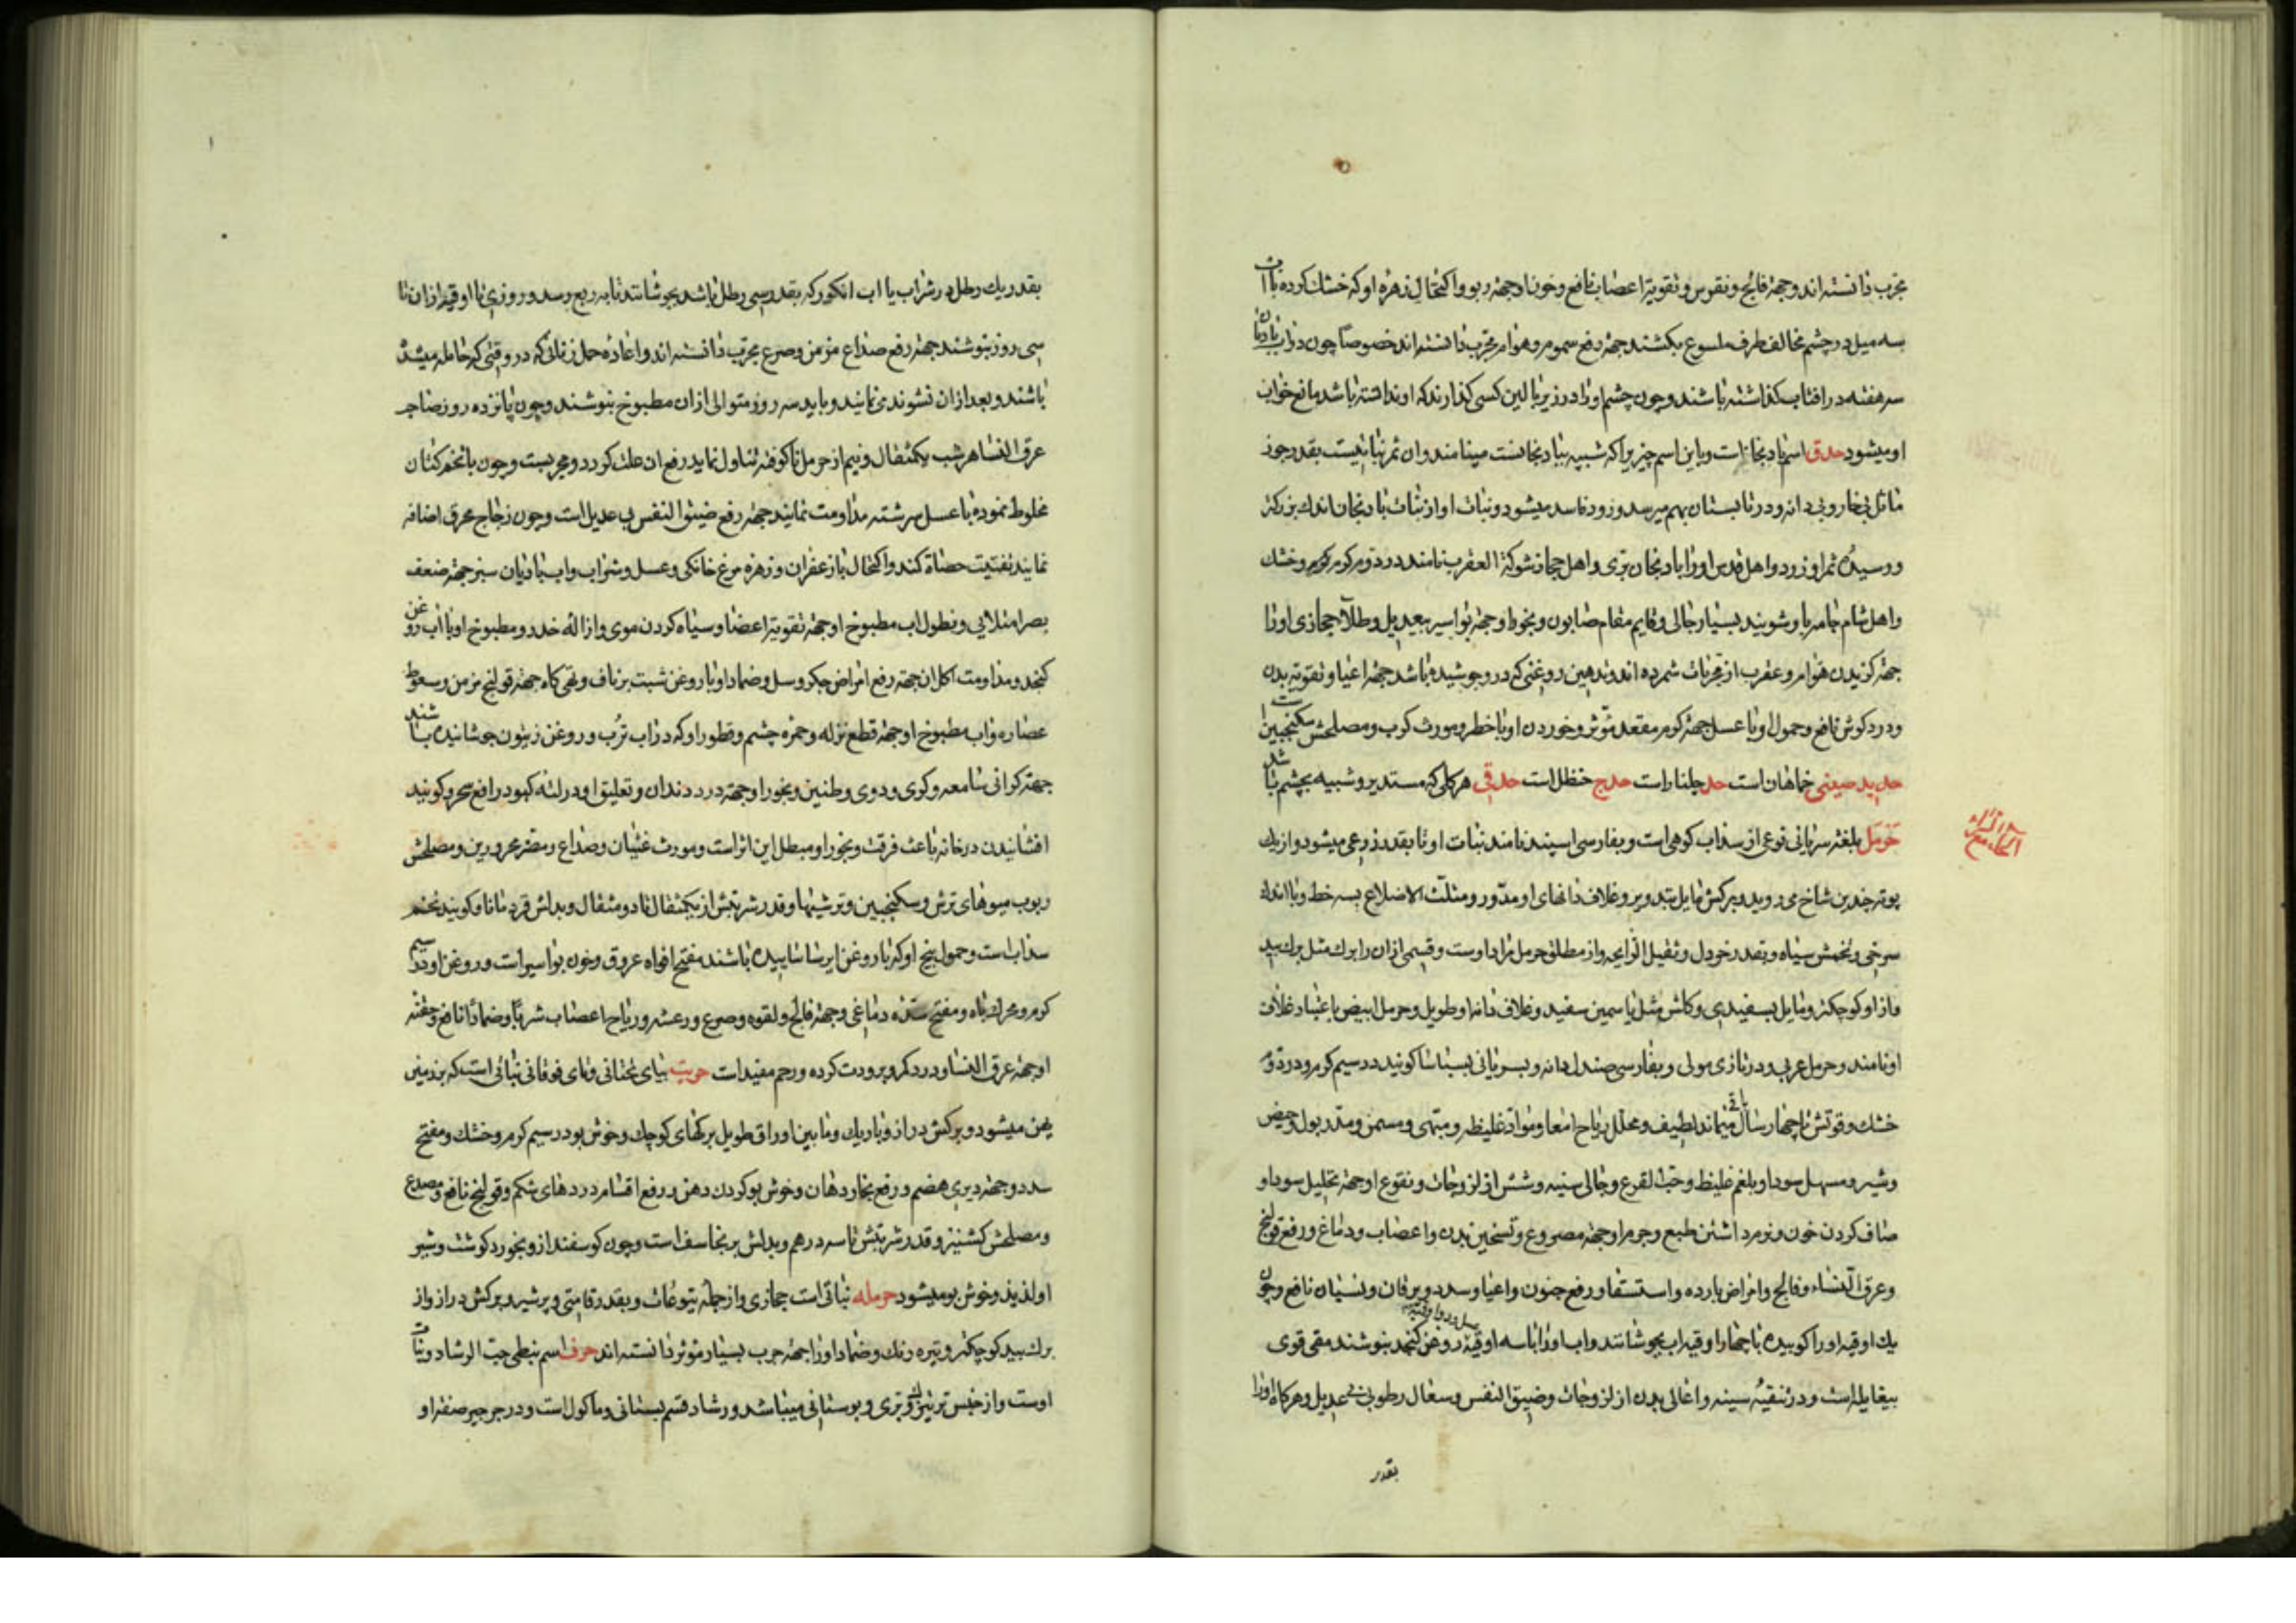 مجرب دانسته اند و جهة فالج و نقرس و تقویة اعصاب نافع و خوناد جهة ربو و اکتحال زهره او که خشک کرده با اب
سه میل در چشم مخالف طرف ملسوع بکشند جهة دفع سموم و هوام مجرب دانسته اند خصوصا چون در اب بادیان
سه هفته در افتاب کذاشته باشند و چون چشم او را در زیر بالین کسی کذارند که او ندانسته باشد مانع خواب
او میشود حدق اسم بادنجانست و باین اسم چیزیرا که شبیه ببادنجانست مینامند و ان ثمر نباتیست بقدر جوز
مائل بخار و بی دانه و در تابستان بهم میرسد و زود فاسد میشود و نبات او از نبات بادنجان اندک بزرکتر
و رسیدۀ ثمر او زرد و اهل قدس او را بادنجان بری و اهل حجاز شوکة العقرب نامند در دوم کرم و خشک
و اهل شام جامه باو شویند بسیار جالی و قایم مقام صابون و بخور او جهة بواسیر بیعدیل و طلآء حجازی او را
جهة کزیدن هوام و عقرب از مجربات شمرده اند و تدهین روغنی که در و جوشیده باشد جهة اعیا و تقویة بدن
و درد کوش نافع و حمول او با عسل جهة کرم مقعد مؤثر و خوردن او با خطر و مورث کرب و مصلحش سکنجبین است
حدید صینی خماهان است حد جلنار است حدج حنظل است حدقی هر کلی که مستدیر و شبیه بچشم باشد
حرمل بلغة سریانی نوعی از سداب کوهی است و بفارسی اسپند نامند نبات او تا بقدر ذرعی میشود و از یک
بوته چندین شاخ میروید و برکش مایل بتدویر و غلاف دانهای او مدور و مثلث الاضلاع بسه خط و با اندک
سرخی و تخمش سیاه و بقدر خردل و ثقیل الرایحه و از مطلق حرمل مراد اوست و قسمی از ان را برک مثل برک بید
و از او کوچکتر و مایل بسفیدی و کلش مثل یاسمین سفید و غلاف دانه او طویل و حرمل ابیض باعتبار غلاف
او نامند و حرمل عربی و در تازی مولی و بفارسی صندل دانه و بسریانی بسباسا کویند در سیم کرم و در دوم
خشک و قوتش تا چهار سال باقی میماند لطیف و محلل ریاح امعا و مواد غلیظه و مبهی و مسمن و مدر بول و حیض
و شیر و مسهل سودا و بلغم غلیظ و حب القرع و جالی سینه و شش از لزوجات و نقوع او جهة تحلیل سودا و
صاف کردن خون و نرم داشتن طبع و جرم او جهة مصروع و تسخین بدن و اعصاب و دماغ و رفع قولنج
و عرق النساء و فالج و امراض بارده و استسقا و رفع جنون و اعیا و سدد و یرقان و نسیان نافع و چون
یک اوقیه او را کوبیده با چهار اوقیه اب بجوشانند و اب او را با سه اوقیه روغن کنجد بنوشند مقی قوی
بیغایله است و در تنقیۀ سینه و اعالی بدن از لزوجات و ضیق النفس و سعال رطوبی بی عدیل و هرکاه او را
بقدر
بقدر یک رطل در شراب یا اب انکور که بقدر سی رطل باشد بجوشانند تا بربع رسد و روزی تا اوقیه از ان تا
سی روز بنوشند جهة رفع صداع مزمن و صرع مجرب دانسته اند و اعادۀ حمل زنانی که در وقتی که حامله میشده
باشند و بعد از ان نشوند می نمایند و باید سه روز متوالی از ان مطبوخ بنوشند و چون پانزده روز صاحب
عرق النسا هر شب یکمثقال و نیم از حرمل ناکوفته تناول نماید رفع ان علت کردد و مجربست و چون با تخم کتان
مخلوط نموده با عسل سرشته مداومت نمایند جهة رفع ضیق النفس بی عدیل است و چون زجاج محرق اضافه
نمایند تفتیت حصاة کند و اکتحال با زعفران و زهره مرغ خانکی و عسل و شراب و اب بادیان سبز جهة ضعف
بصر امتلایی و نطول اب مطبوخ او جهة تقویة اعضا و سیاه کردن موی و ازالۀ خدر و مطبوخ او با اب روغن
کنجد و مداومت اکل ان جهة رفع امراض جکر و سل و ضماد او با روغن شبت بر ناف و تهی کاه جهة قولنج مزمن و سعوط
عصاره و اب مطبوخ او جهة قطع نزله و حمرۀ چشم و قطور او که در اب ترب و روغن زیتون جوشانیده باشند
جهة کرانی سامعه و کری و دوی و طنین و بخور او جهة درد دندان و تعلیق او در لته کبود رافع سحر و کویند
افشانیدن در خانه باعث فرقت و بخور او مبطل این اثر است و مورث غثیان و صداع و مضر محرورین و مصلحش
ربوب میوهای ترش و سکنجبین و ترشیها و قدر شربتش از یکمثقال تا دو مثقال و بدلش قردمانا و کویند تخم
سداب است و حمول بیخ او که با روغن ایرسا ساییده باشند مفتح افواه عروق و خون بواسیر است و روغن او در سیم
کرم و محرک باه و مفتح سدۀ دماغی و جهة فالج و لقوه و صرع و رعشه و ریاح اعصاب شربا و ضمادا نافع و حقنه
او جهة عرق النسا و درد کمر و برودت کرده و رحم مفید است حریت بیای تحتانی و تای فوقانی نباتی است که بزمین
یمن میشود و برکش دراز و باریک و ما بین اوراق طویل برکهای کوچک و خوش بو در سیم کرم و خشک و مفتح
سدد و جهة دیری هضم و رفع بخار دهان و خوش بو کردن دهن و رفع اقسام دردهای شکم و قولنج نافع و مصدع
و مصلحش کشنیز و قدر شربتش تا سه درهم و بدلش برنجاسف است و چون کوسفند از و بخورد کوشت و شیر
او لذیذ و خوش بو میشود حرمله نباتی است حجازی و از جملۀ یتوعات و بقدر قامتی و پر شیر و برکش دراز و از
برک بید کوچکتر و تیره رنک و ضماد او را جهة جرب بسیار مؤثر دانسته اند حرف اسم نبطی حب الرشاد و نبات
اوست و از جنس تره تیزک و بری و بوستانی میباشد و رشاد قسم بستانی و ماکول است و در جرجیر صفت او